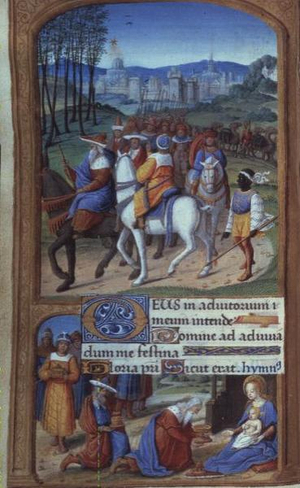 DEUS in adiutorium
meum intende
Domine ad adiuua
dum me festina
Gloria pri Sicut erat. hymnꝰ